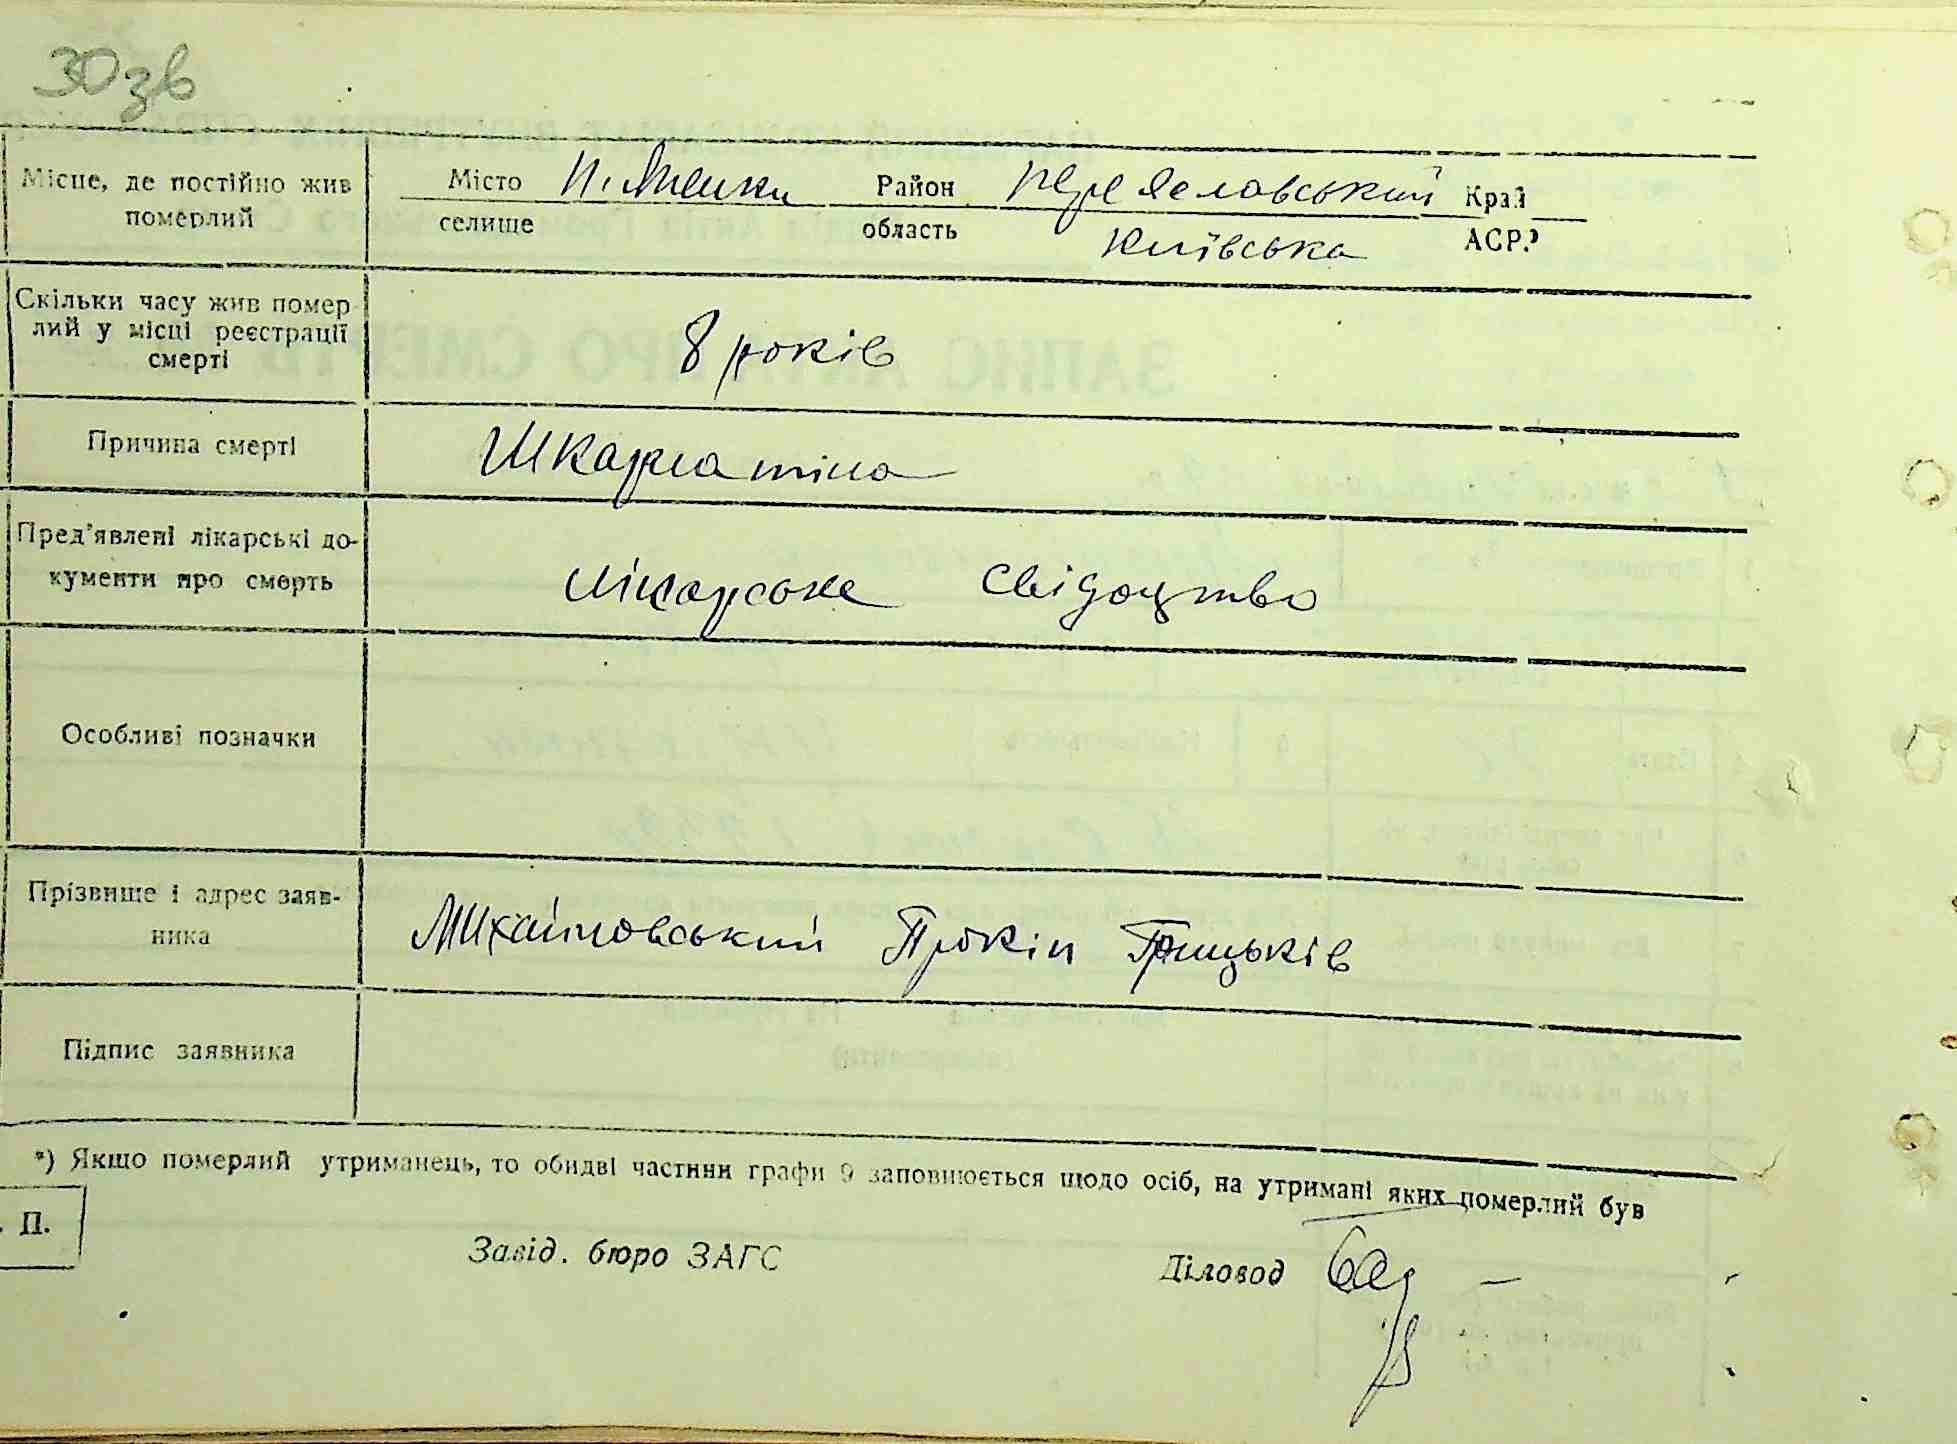 30зв
Місце, де постійно жив
померлий
Місто П. Яненки Район Переяславський Край
селище область Київська АСР.*)
Скільки часу жив помер
лий у місці реєстрації
смерті
8 років
Причина смерті Шкарлатіна
Пред'явлені лікарські до-
кументи про смерть
лікарське свідоцтво
Особливі позначки
Прізвище і адрес заяв-
ника
Михайловський Прокіп Грицьків
Підпис заявника
*) Якщо померлий утриманець, то обидві частини графи 9 заповнюється щодо осіб, на утримані яких померлий був
. П.
Завід. бюро ЗАГС Діловод